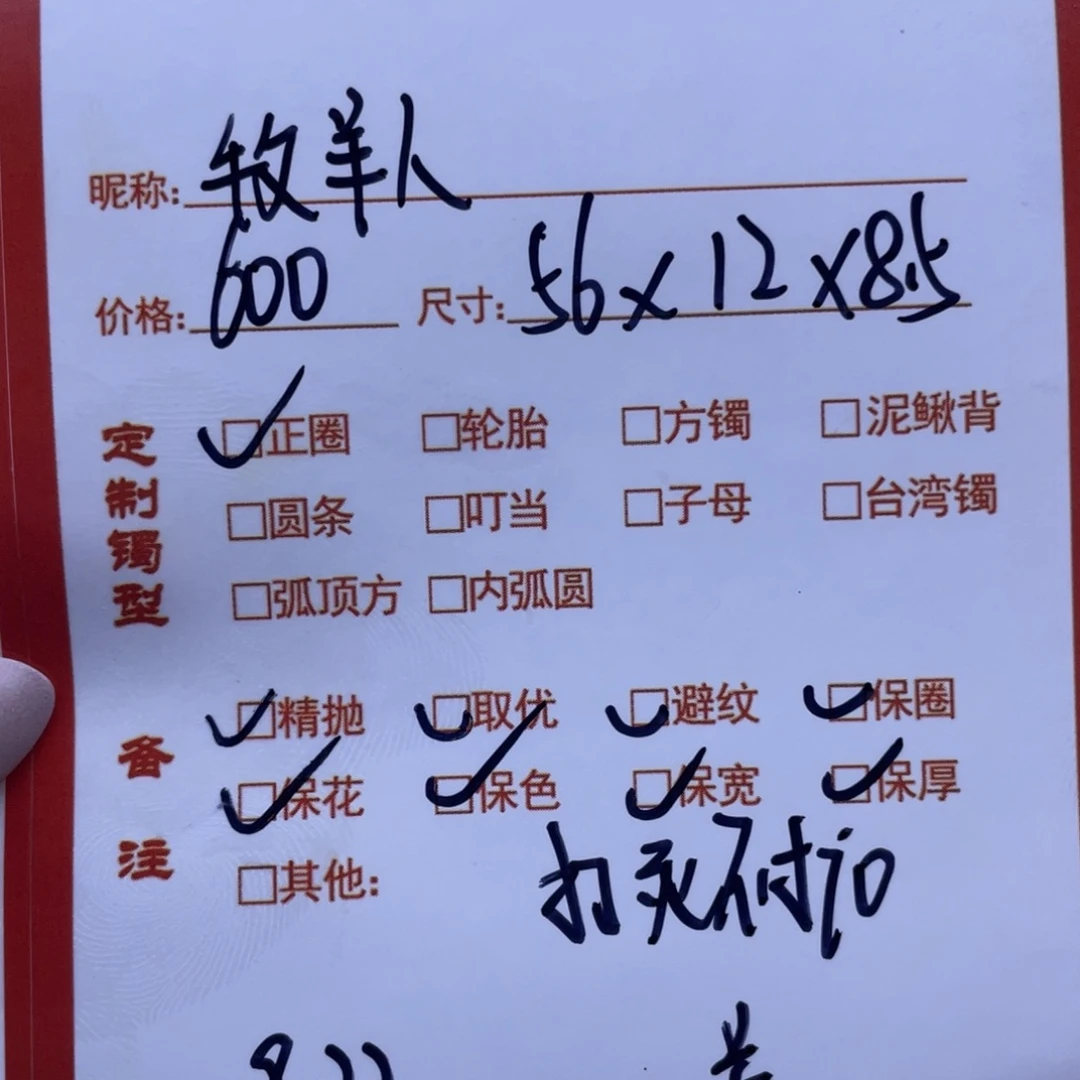 昵称: 牧羊人
价格: 600 尺寸: 56×12×8.5
定制镯型
□正圈 □轮胎 □方镯 □泥鳅背
□圆条 □叮当 □子母 □台湾镯
□弧顶方 □内弧圆
备注
□精抛 □取优 □避纹 □保圈
□保花 □保色 □保宽 □保厚
□其他: 打灰不付